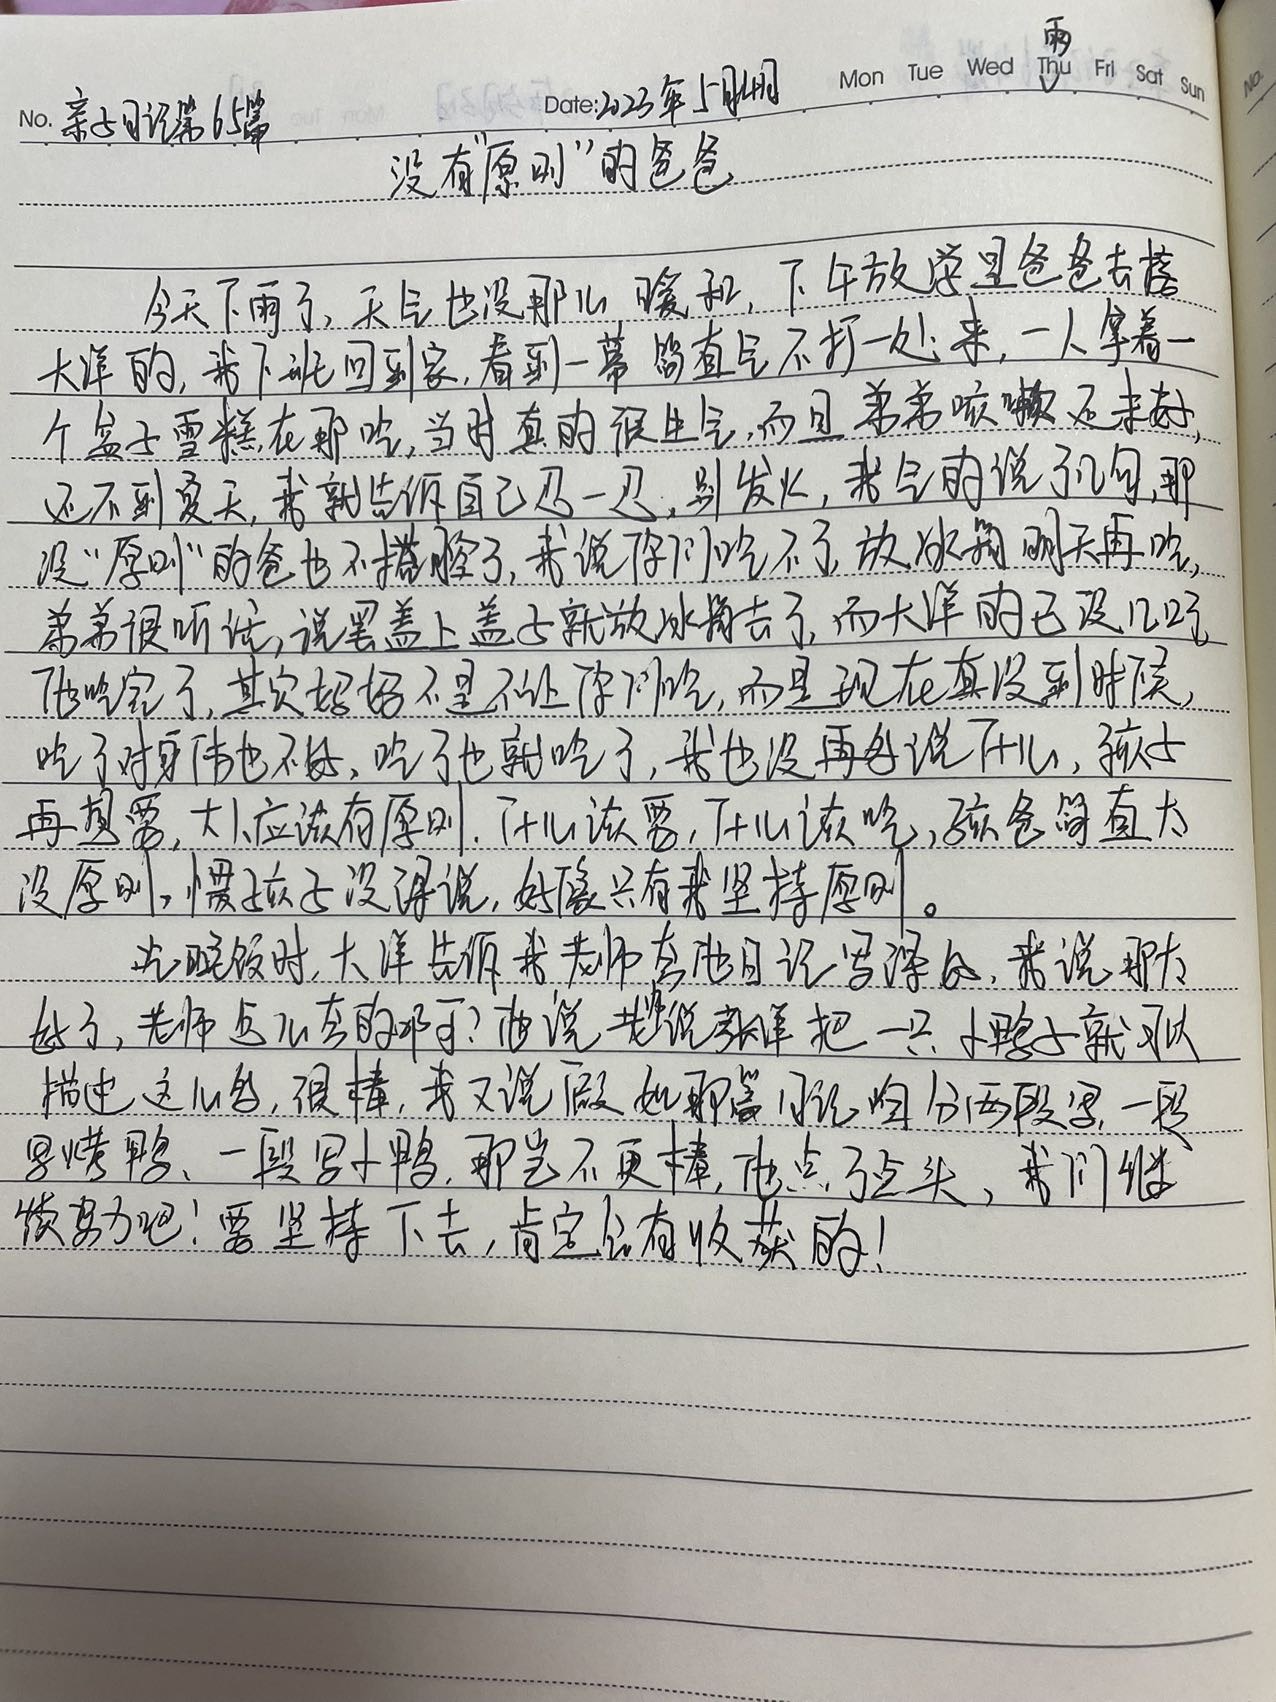 雨
Mon Tue Wed Thu Fri Sat Sun
No. 亲子日记第65篇 Date:2023年5月4日
没有“原则”的爸爸
今天下雨了,天气也没那么暖和,下午放学是爸爸去接
大洋的,我下班回到家,看到一幕简直气不打一处来,一人拿着一
个盒子雪糕在那吃,当时真的很生气,而且弟弟咳嗽还未好,
还不到夏天,我就告诉自己忍一忍,别发火,我气的说了几句,那
没“原则”的爸也不搭腔了,我说你们吃不了,放冰箱明天再吃,
弟弟很听话,说罢盖上盖子就放冰箱去了,而大洋的已没几口了
他吃完了,其实妈妈不是不让你们吃,而是现在真没到时候,
吃了对身体也不好,吃了也就吃了,我也没再说什么,孩子
再想要,大人应该有原则.什么该要,什么该吃,孩爸简直太
没原则,惯孩子没得说,好像只有我坚持原则。
吃晚饭时,大洋告诉我老师夸他日记写得好,我说那太
好了,老师怎么夸的呀?他说老师说张洋把一只小鸭子就可以
描述这么多,很棒,我又说假如那篇日记咱分两段写,一段
写烤鸭、一段写小鸭,那岂不更棒,他点了点头,我们继
续努力吧!要坚持下去,肯定会有收获的!
No.